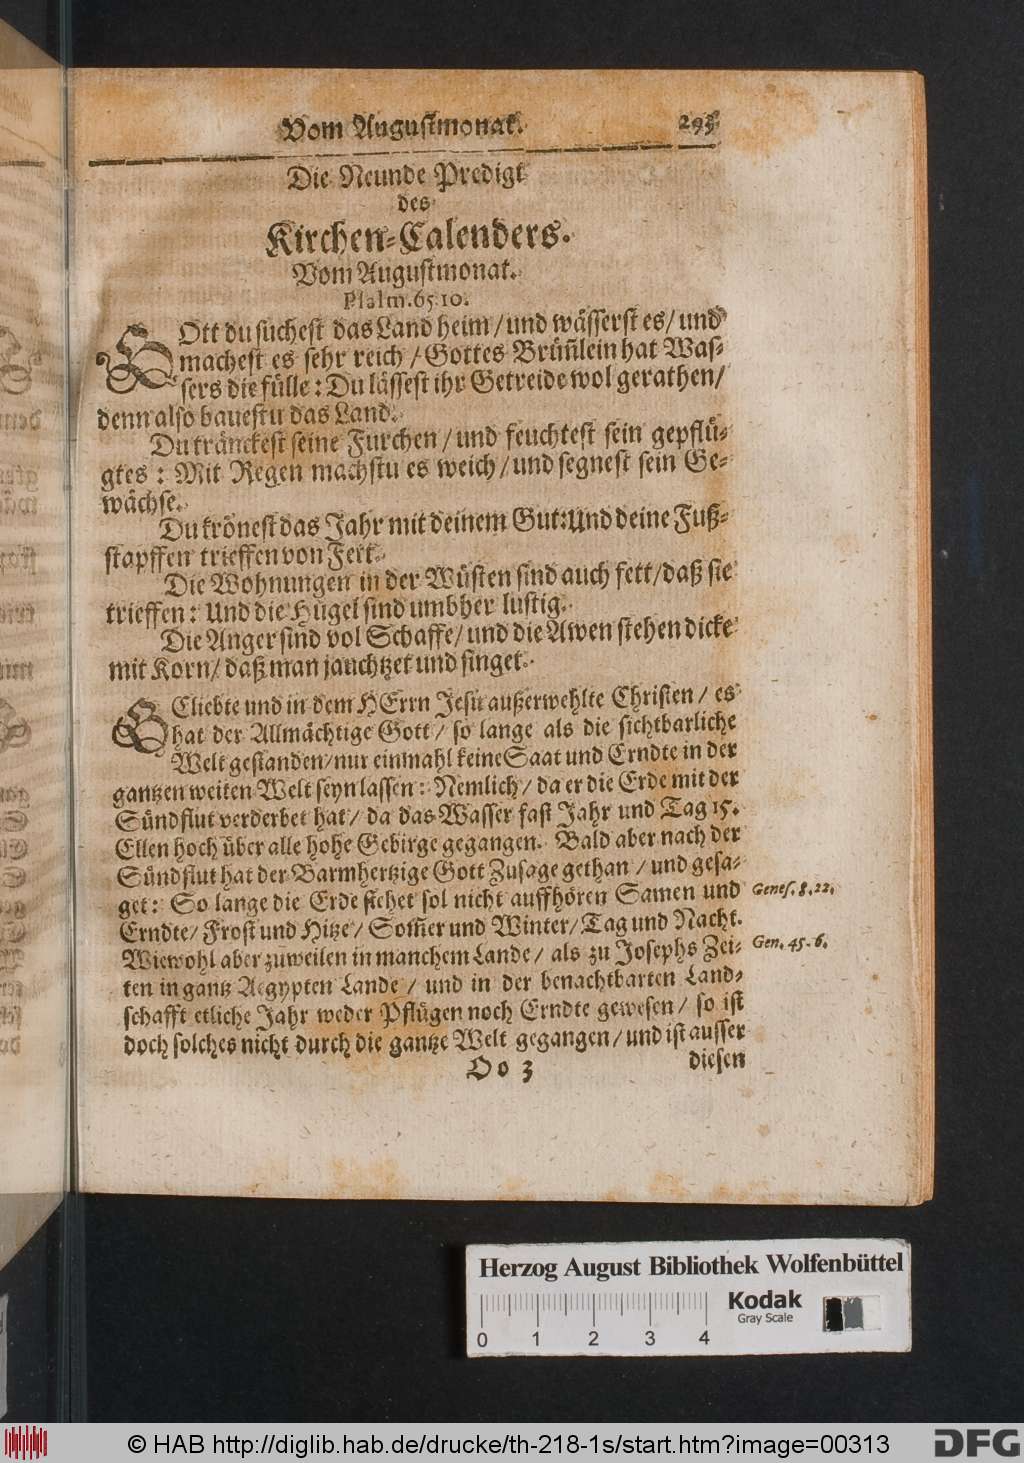 Vom Augustmonat. 295
Die Neunde Predigt
des
Kirchen-Calenders.
Vom Augustmonat.
Psalm. 65. 10.
GOtt du suchest das Land heim / und wässerst es / und
machest es sehr reich / Gottes Brünnlein hat Was-
sers die fülle: Du lässest ihr Getreide wol gerathen /
denn also bauestu das Land.
Du tränckest seine Furchen / und feuchtest sein gepflü-
gtes: Mit Regen machstu es weich / und segnest sein Ge-
wächse.
Du krönest das Jahr mit deinem Gut: Und deine Fuß-
stapffen trieffen von Fett.
Die Wohnungen in der Wüsten sind auch fett / daß sie
trieffen: Und die Hügel sind umbher lustig.
Die Anger sind vol Schaffe / und die Awen stehen dicke
mit Korn / daß man jauchtzet und singet.
GEliebte und in dem HErrn Jesu außerwehlte Christen / es
hat der Allmächtige Gott / so lange als die sichtbarliche
Welt gestanden / nur einmahl keine Saat und Erndte in der
gantzen weiten Welt seyn lassen: Nemlich / da er die Erde mit der
Sündflut verderbet hat / da das Wasser fast Jahr und Tag 15.
Ellen hoch über alle hohe Gebirge gegangen. Bald aber nach der
Sündflut hat der Barmhertzige Gott Zusage gethan / und gesa-
get: So lange die Erde stehet sol nicht auffhören Samen und Genes. 8. 22.
Erndte / Frost und Hitze / Som̃er und Winter / Tag und Nacht.
Wiewohl aber zuweilen in manchem Lande / als zu Josephs Zei- Gen. 45. 6.
ten in gantz Aegypten Lande / und in der benachtbarten Land-
schafft etliche Jahr weder Pflügen noch Erndte gewesen / so ist
doch solches nicht durch die gantze Welt gegangen / und ist ausser
Oo 3 diesen
Herzog August Bibliothek Wolfenbüttel
Kodak
Gray Scale
0 1 2 3 4
© HAB http://diglib.hab.de/drucke/th-218-1s/start.htm?image=00313
DFG